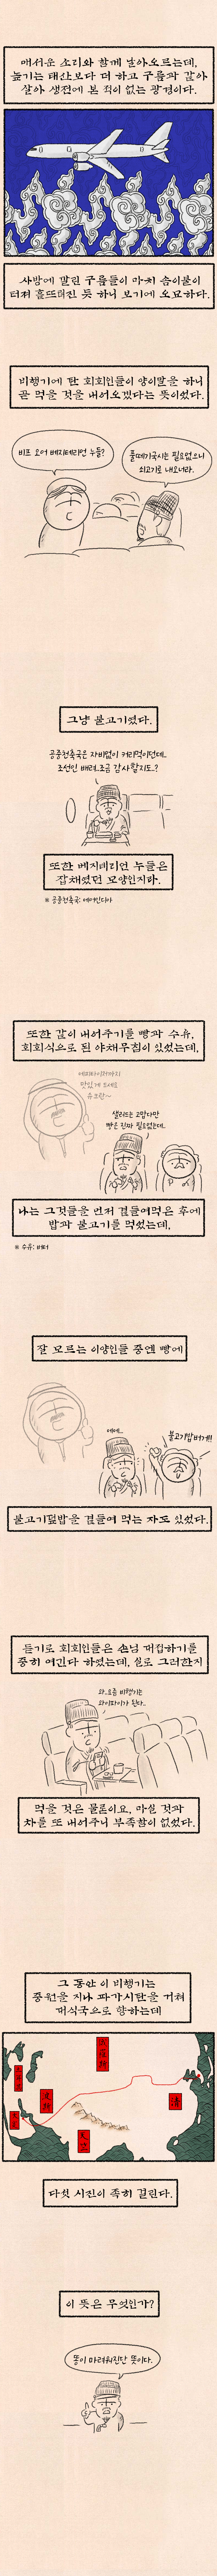 매서운 소리와 함께 날아오르는데,
높기는 태산보다 더 하고 구름과 같아
살아 생전에 본 적이 없는 광경이다.
사방에 깔린 구름들이 마치 솜이불이
터져 흩뜨려진 듯 하니 보기에 오묘하다.
비행기에 탄 회회인들이 양이말을 하니
곧 먹을 것을 내어오겠다는 뜻이렸다.
비프 오어 베지테리언 누들?
풀떼기국시는 필요없으니
쇠고기로 내오너라.
그냥 불고기였다.
공중천축국은 자비없이 커리먹이던데..
조선인 배려..조금 감사할지도..?
또한 베지테리언 누들은
잡채였던 모양인지라.
※ 공중천축국: 에어인디아
또한 같이 내어주기를 빵과 수유,
회회식으로 된 야채무침이 있었는데,
에피타이저까지
맛있게 드세요
유 코란~
샐러드는 고맙다만
빵은 진짜 필요없는데..
나는 그것들을 먼저 곁들여먹은 후에
밥과 불고기를 먹었는데,
※ 수유: 버터
잘 모르는 이양인들 중엔 빵에
에에...
불고기밥버거!!
불고기덮밥을 곁들여 먹는 자도 있었다.
듣기로 회회인들은 손님 대접하기를
중히 여긴다 하였는데, 실로 그러한지
와..요즘 비행기는
와이파이가 된다..
먹을 것은 물론이요, 마실 것과
차를 또 내어주니 부족함이 없었다.
그 동안 이 비행기는
중원을 지나 파가시탄을 거쳐
대식국으로 향하는데
淸
다섯 시진이 족히 걸린다.
이 뜻은 무엇인가?
똥이 마려워진단 뜻이다.